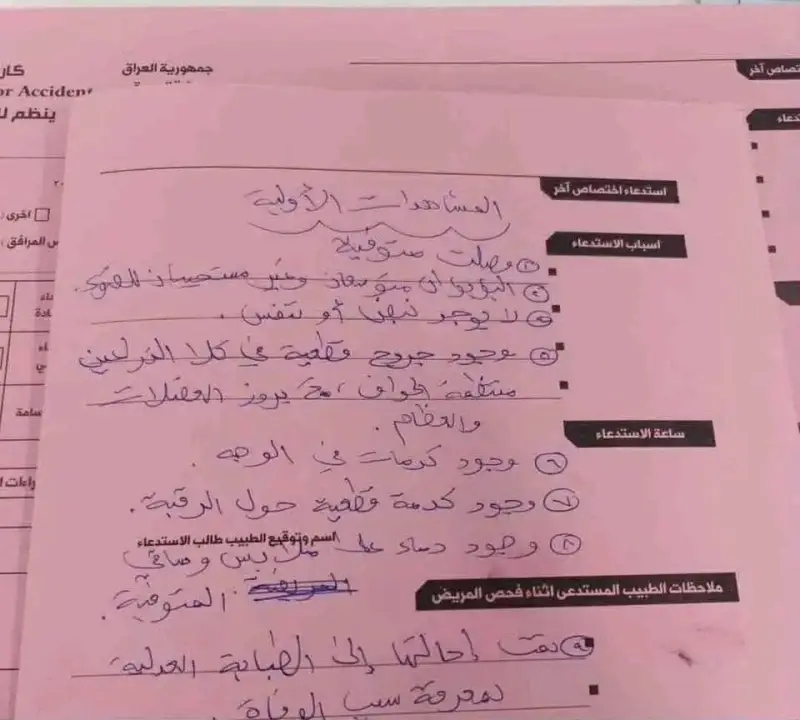 كار
جمهورية العراق
or Accident
ينظم لـ
اختصاص آخر
استدعاء اختصاص آخر
المشاهدات الأولية
اخرى
اسباب الاستدعاء
المرافق
① وصلت متوفية
② البؤبؤان متوسعان وغير مستجيبان للضوء.
لا يوجد نبض أو تنفس.
⑤ وجود جروح قطعية في كلا الذراعين
منتظمة الحواف، مع بروز العضلات
والعظام.
ساعة الاستدعاء
⑥ وجود كدمات في الوجه.
⑦ وجود كدمة قطعية حول الرقبة.
اسم وتوقيع الطبيب طالب الاستدعاء
⑧ وجود دماء على ملابس وساقي
المتوفية.
ملاحظات الطبيب المستدعى اثناء فحص المريض
⑨ تمت إحالتها إلى الطبابة العدلية
لمعرفة سبب الوفاة.